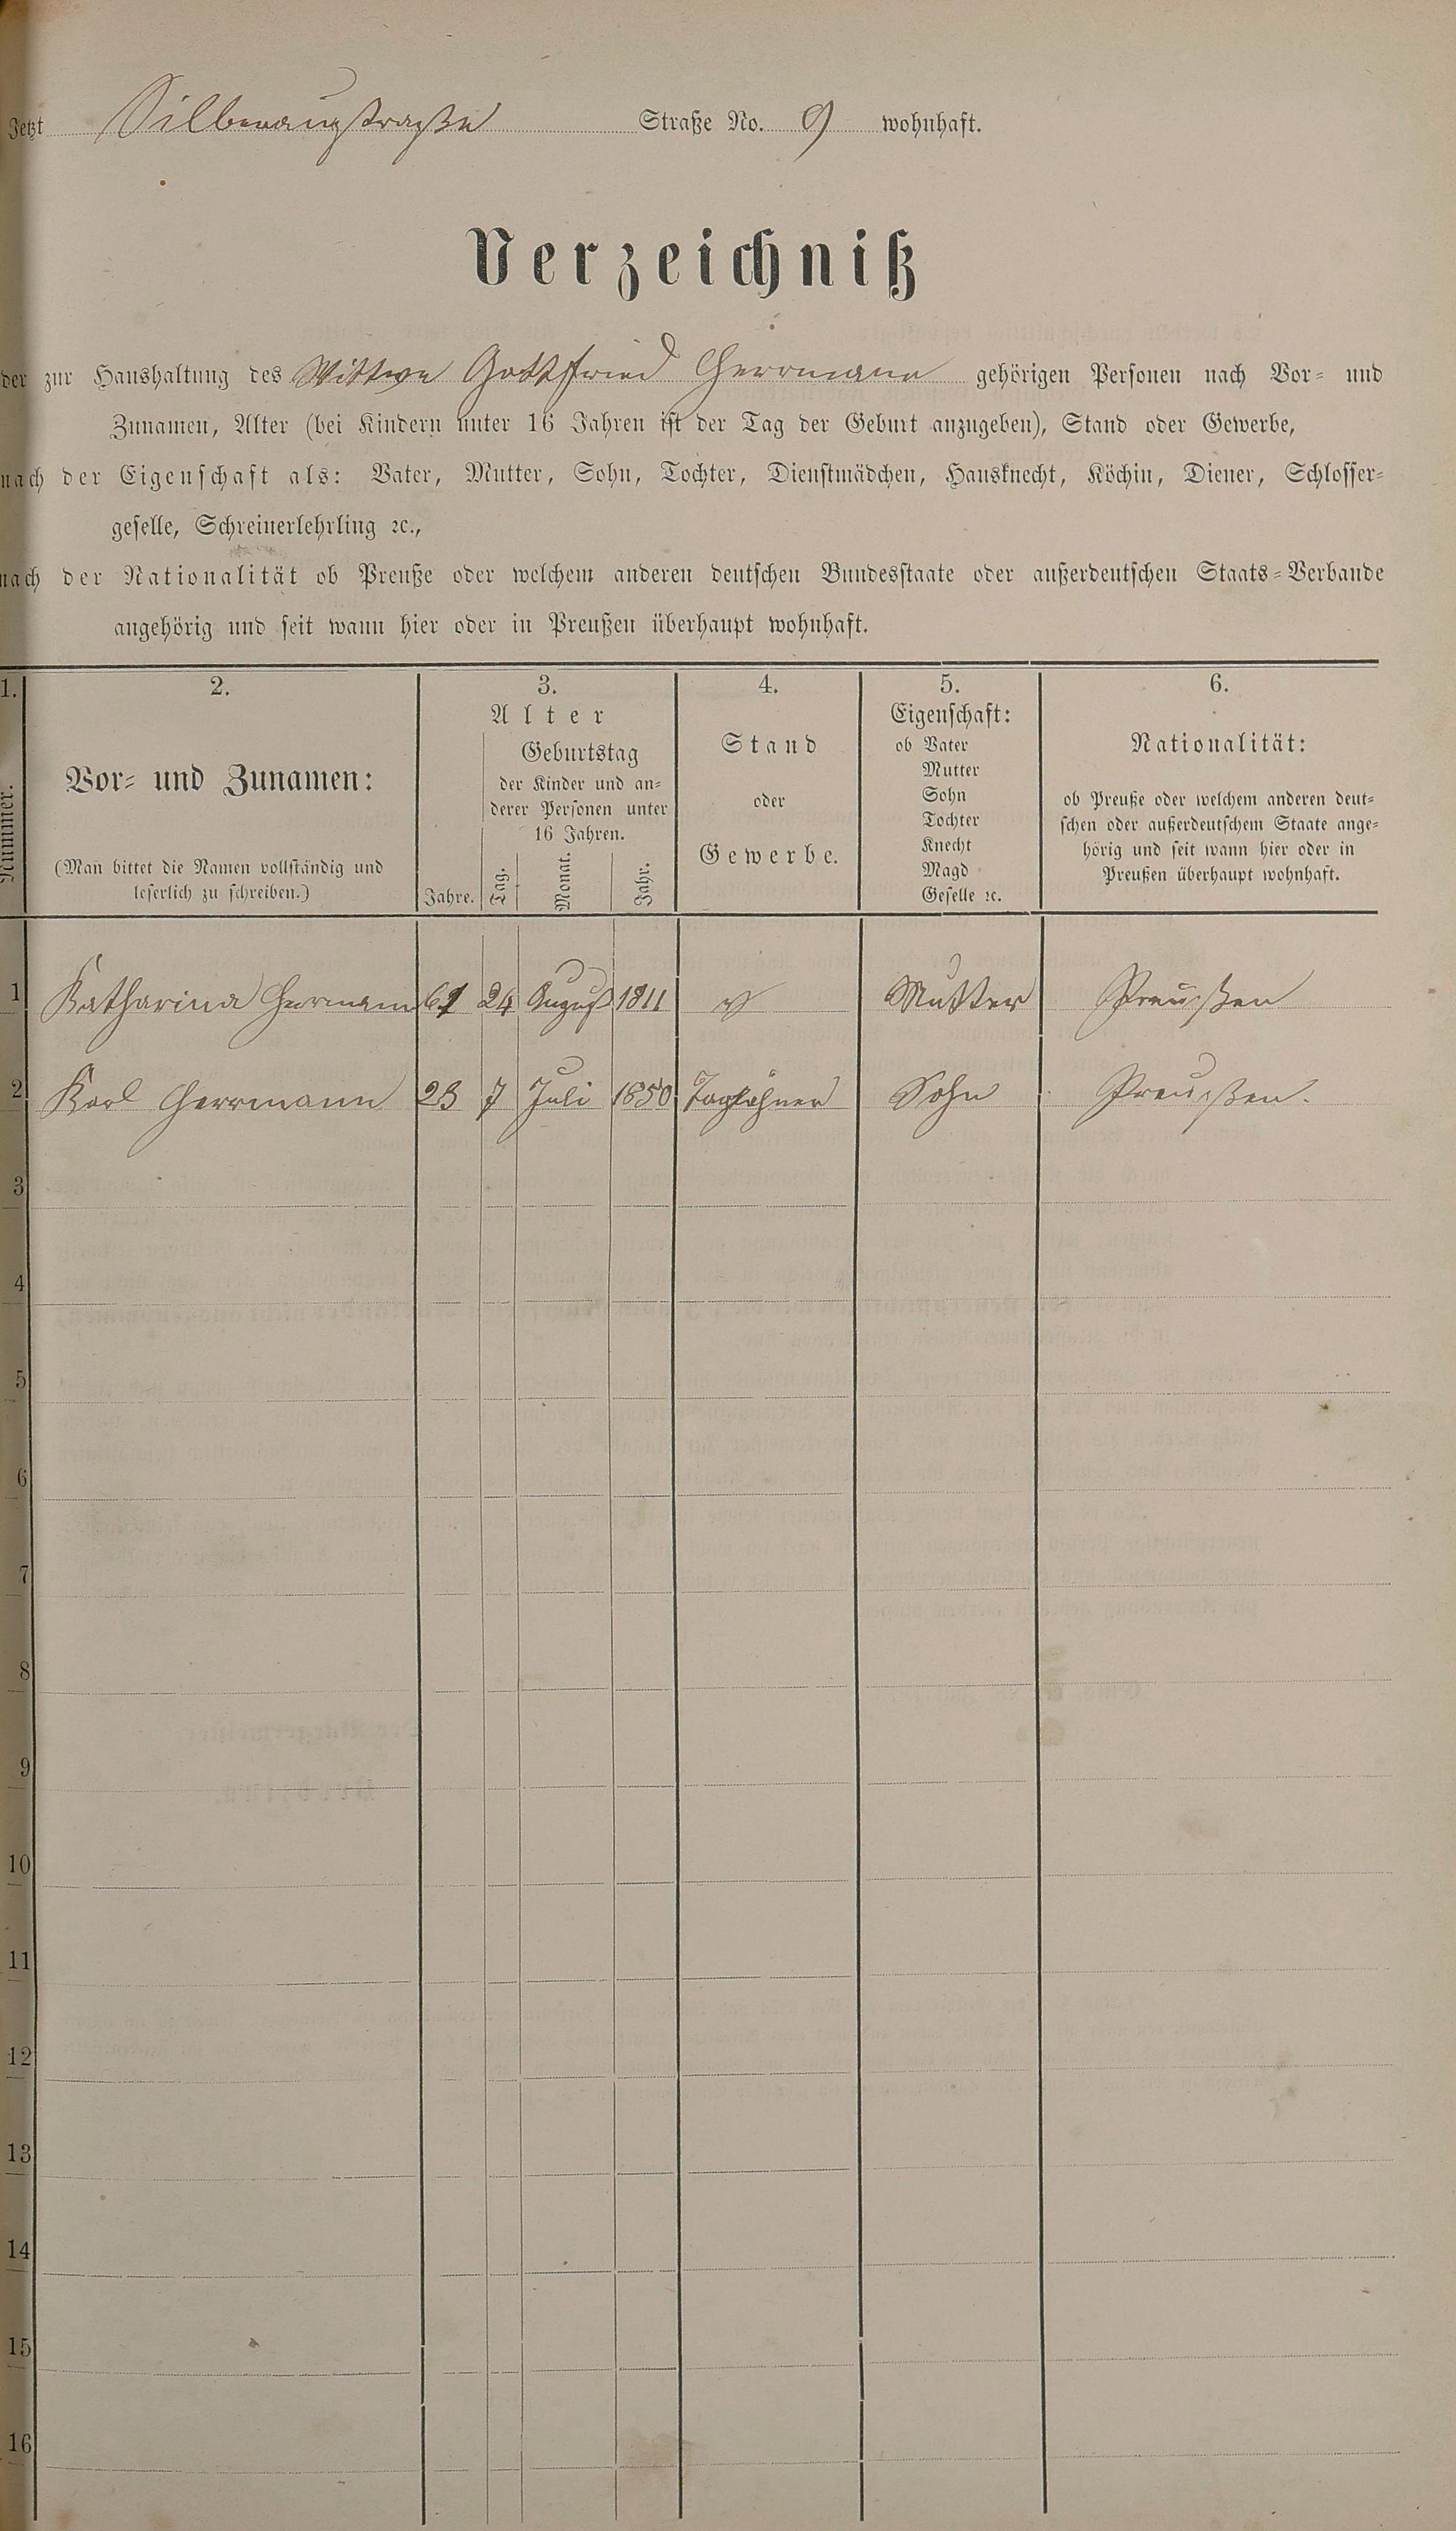 Jetzt Silberaugstraße Straße No. 9 wohnhaft.
Verzeichniß
der zur Haushaltung des Wittwe Gottfried Herrmann gehörigen Personen nach Vor- und
Zunamen, Alter (bei Kindern unter 16 Jahren ist der Tag der Geburt anzugeben), Stand oder Gewerbe,
nach der Eigenschaft als: Vater, Mutter, Sohn, Tochter, Dienstmädchen, Hausknecht, Köchin, Diener, Schlosser-
geselle, Schreinerlehrling ꝛc.,
nach der Nationalität ob Preuße oder welchem anderen deutschen Bundesstaate oder außerdeutschen Staats-Verbande
angehörig und seit wann hier oder in Preußen überhaupt wohnhaft.
1. 2. 3. 4. 5. 6.
Nummer.
Vor- und Zunamen:
(Man bittet die Namen vollständig und
leserlich zu schreiben.)
Alter
Geburtstag
der Kinder und an-
derer Personen unter
16 Jahren.
Jahre. Tag. Monat. Jahr.
Stand
oder
Gewerbe.
Eigenschaft:
ob Vater
Mutter
Sohn
Tochter
Knecht
Magd
Geselle ꝛc.
Nationalität:
ob Preuße oder welchem anderen deut-
schen oder außerdeutschem Staate ange-
hörig und seit wann hier oder in
Preußen überhaupt wohnhaft.
1 Katharina Herrmann 24 August 1811 Mutter Preußen
2 Karl Herrmann 23 7 Juli 1850 Taglöhner Sohn Preußen.
3
4
5
6
7
8
9
10
11
12
13
14
15
16